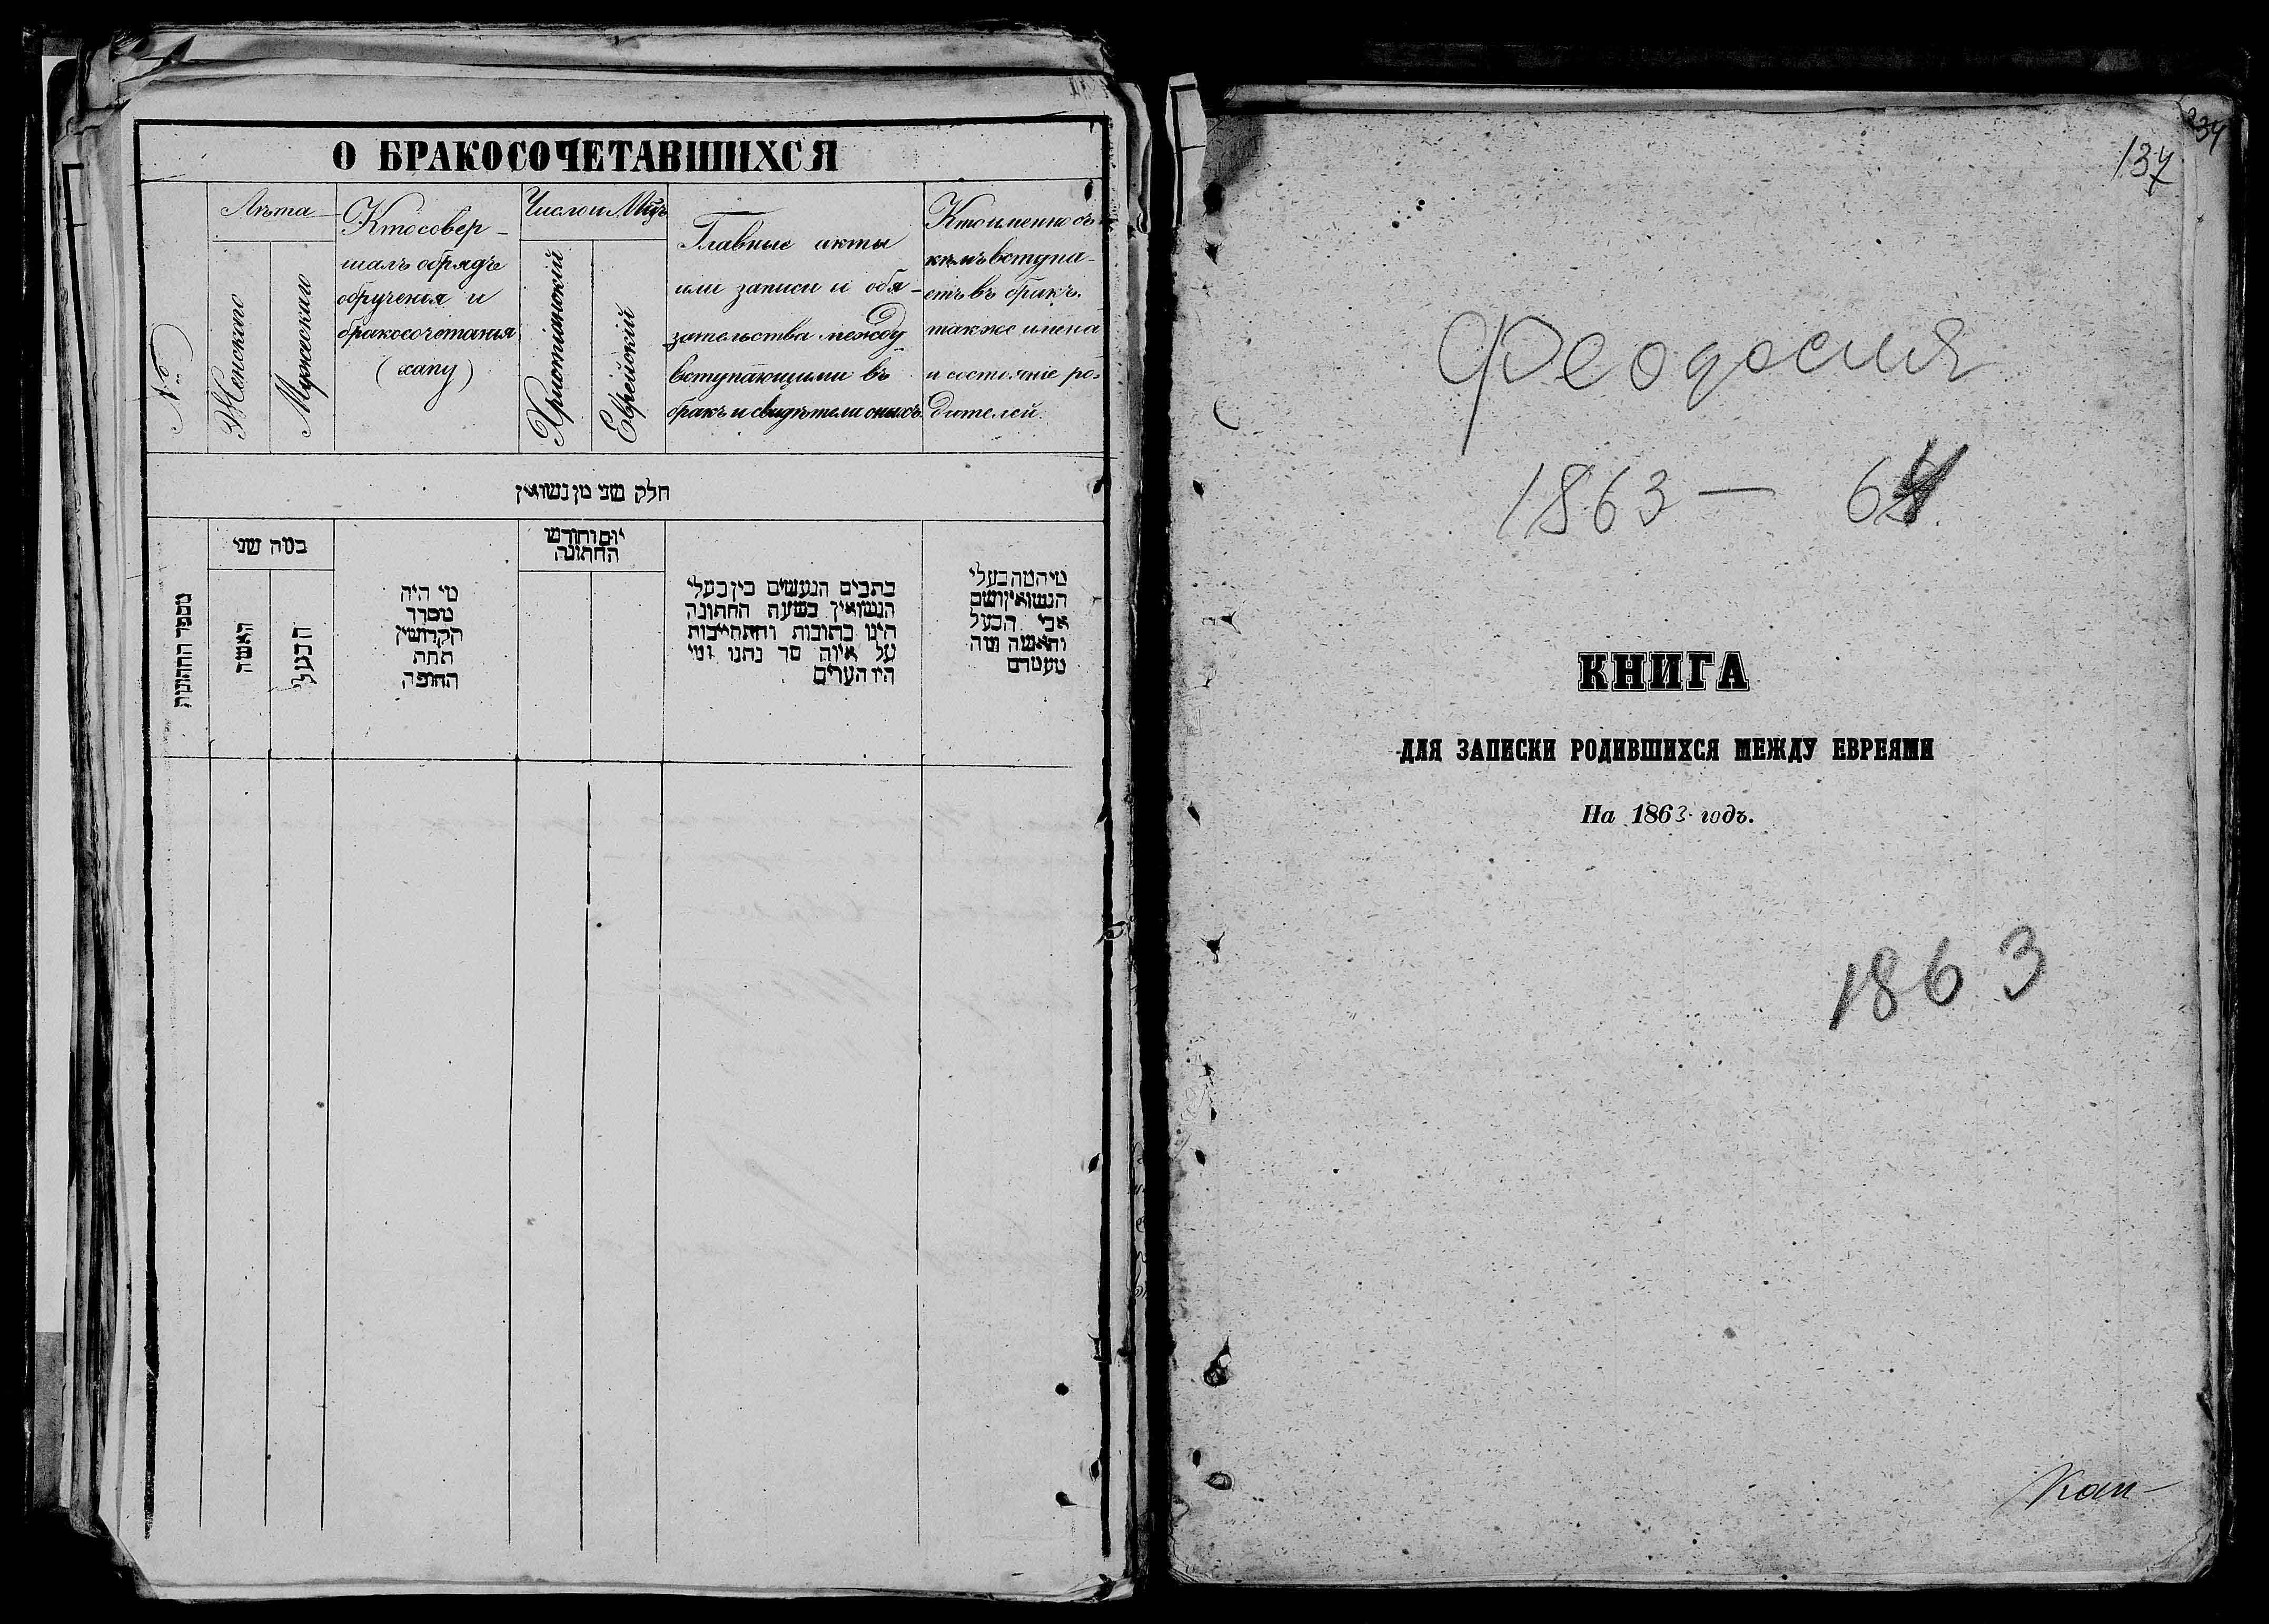 О БРАКОСОЧЕТАВШИХСЯ
№
Лѣта
Женскаго
Мужескаго
Кто совер-
шалъ обрядъ
обрученія и
бракосочетанія
(хапу)
Число и Мцъ
Христіанскій
Еврейскій
Главные акты
или записи и обя-
зательства между
вступающими въ
бракъ и свидѣтели оныхъ
Кто именно съ
кѣмъ вступа-
етъ въ бракъ.
также имена
и состояніе ро-
дителей.
חלק שני מן נשואין
מספר החתונות
כמה שני
האשה
הבעל
מי היה
מסדר
הקדושין
תחת
החופה
יום וחודש
החתונה
כתבים הנעשים בין בעלי
הנשואין בשעת החתונה
היינו כתובות והתחייבות
על איזה סך נתנו ומי
היו העדים
מי המה בעלי
הנשואין ושם
אבי הבעל
והאשה ומה
מעמדם
234
137
Феодосия
1863 — 64
КНИГА
ДЛЯ ЗАПИСКИ РОДИВШИХСЯ МЕЖДУ ЕВРЕЯМИ
На 1863 годъ.
1863